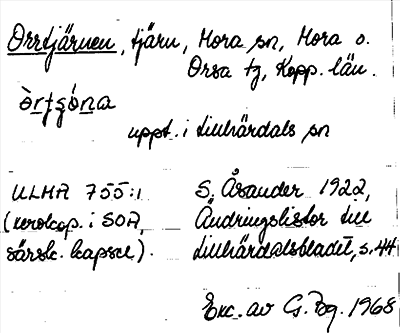 Orrtjärnen, tjärn, Mora sn, Mora o.
Orsa tg, Kopp. län.
òrtʂó̱na
uppt. i Lillhärdals sn
ULMA 755:1
(xerokop. i SOA,
särsk. kapsel).
S. Åsander 1922,
Ändringslistor till
Lillhärdalsbladet, s. 44
Exc. av G. Bg. 1968